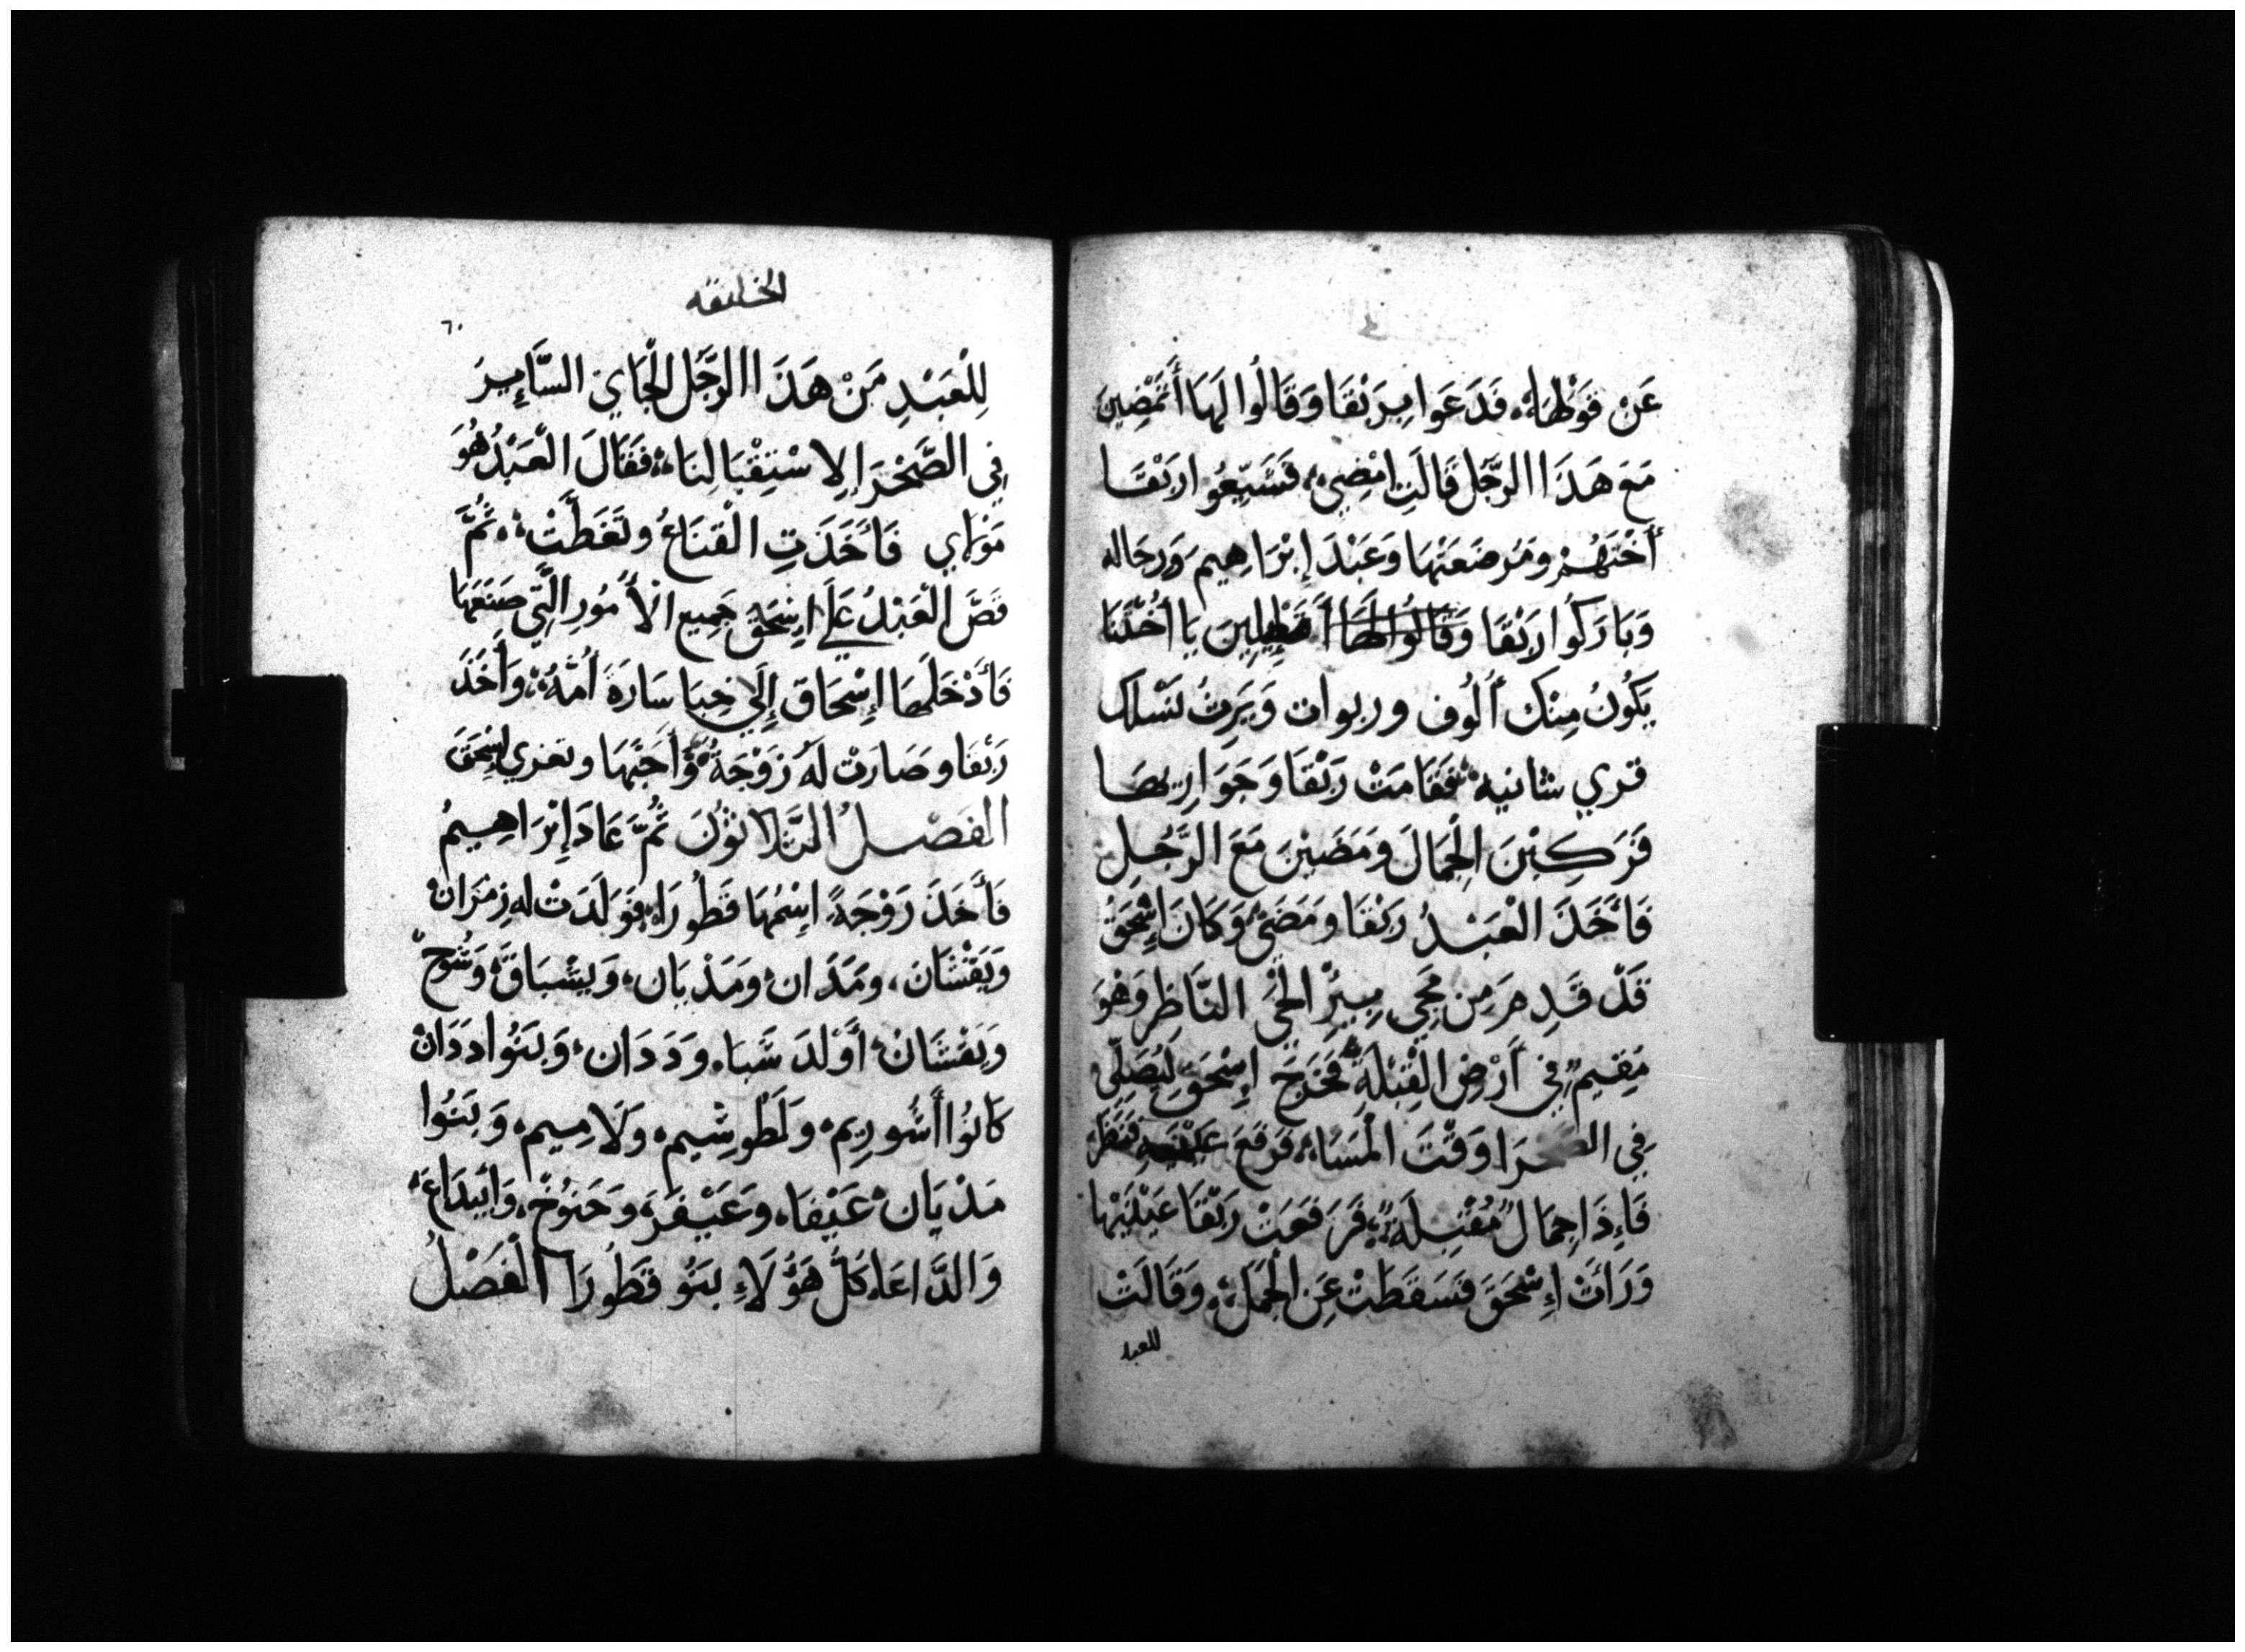 عَن قَوْلِهَا، فَدَعَوا بِرَبْقَا وَقَالُوا لَهَا أَتَمْضِينَ
مَعَ هَذَا الرَّجُل قَالَت امْضِي، فَشَيَّعُوا رَبْقَا
أُخْتَهُمْ وَمُرضَعَتَهَا وَعَبْدَ إِبْرَاهِيم وَرِجَاله
وَبَارَكُوا رَبْقَا وَقَالُوا لَهَا يَا أُخْتَنَا
يَكُونُ مِنْك أُلُوف وربوات وَيَرِثُ نَسْلك
قري شانيه فَقَامَتْ رَبْقَا وَجَوَارِيهَا
فَرَكِبْنَ الْجِمَالَ وَمَضَيْنَ مَعَ الرَّجُلِ
فَأَخَذَ الْعَبْدُ رَبْقَا وَمَضَى وَكَانَ إِسْحَقُ
قَدْ قَدِمَ مِن مَجِي بِيرِ الْحَي النَّاظِر وَهُوَ
مُقِيمٌ فِي أَرْضِ الْقِبْلَةِ فَخَرَجَ إِسْحَق لِيُصَلِّي
فِي الصَّحْرَا وَقْتَ الْمَسَاء، فَرَفَعَ عَيْنَيهِ فَنَظَرَ
فَإِذَا جِمَالٌ مُقْبِلَةٌ، فَرَفَعَتْ رَبْقَا عَيْنَيْهَا
وَرَأَتْ إِسْحَقَ فَسَقَطَتْ عَنِ الْجَمَلِ، وَقَالَتْ
للعبد
الخليقه
٦٠
لِلْعَبْدِ مَنْ هَذَا الرَّجُل الْجَاي السَّايِرَ
فِي الصَّحْرَا لِاسْتِقْبَالِنَا، فَقَالَ الْعَبْدُ هُوَ
مَوْلَاي فَأَخَذَتِ الْقنَاعُ وتَغَطَّتْ، ثُمَّ
قَصَّ الْعَبْدُ عَلَى اسِحَقَ جَمِيع الأُمُورِ الَّتِي صَنَعَهَا
فَأَدْخَلَهَا إِسْحَاق إِلَي خِبَا سَارَةَ أُمَّهُ، وَأَخَذَ
رَبْقَا وَصَارَتْ لَهُ زَوْجَةً وَأَحَبَّهَا وتعزي إِسْحَقَ
الْفَصْلُ الثَّلَاثُوْنَ ثُمَّ عَادَ إِبْرَاهِيمُ
فَأَخَذَ زَوْجَةً اسِمُهَا قَطُورَا، فَوَلَدَتْ لَه زِمْرَانْ
وَيَقْشَانَ، وَمَدَان، وَمَدْيَان، وَيِشْبَاقَ، وَشُوحَ
وَيَقْشَانْ، أَوْلَدَ شَبَا، وَدَدَان، وَبَنُوا دَدَانْ
كَانُوا أَشُورِيم، وَلَطُوشِيم، وَلَامِيم، وَبَنُوا
مَدْيَان، عَيْفَا، وَعَيْفَرَ، وَحَنُوْخ، وَابِيدَاعَ،
وَالدَّاعَا، كُلُّ هَؤُلَاءِ بَنُو قَطُورَا الْفَصْلُ